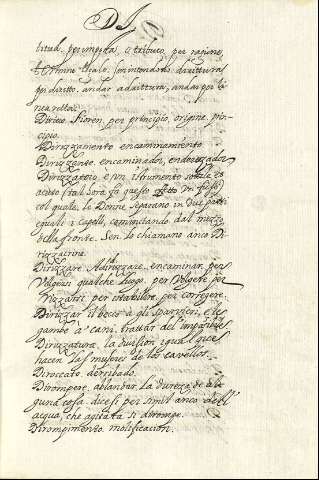 DI
titulo, per impida, o tributo, per ragione,
termine legale, s'intendendo dirittura
per diritto. andar a dirittura, andar per li
nea retta.
Dirivo. fioren. per principio, origine, prin
cipio.
Dirizzamento encaminamiento
Dirizzante. encaminador, enderezador
Dirizzatoio è un istrumento sottile et
acuto
col quale, le Donne separano in due parti
eguali i capelli, cominciando dal mezzo
della fronte. Sen. lo chiamano anco Di
rizzacrine.
Dirizzare. Adirizzare, encaminar, per
Volgersi qualche luogo, per Volgere, per
Rizzarsi, per ristabilire, per correggere.
Dirizzar il becco a gli sparvieri, e le
gambe a' cani, trattar del impossibile
Dirizzatura. la division igual que
hacen las mugeres de los cavellos.
Diroccato. derribado.
Dirompere. ablandar la dureza de al
guna cosa. dicesi per simil. anco dell'
acqua, che agitata si dirompe.
Dirompimento. molificacion.